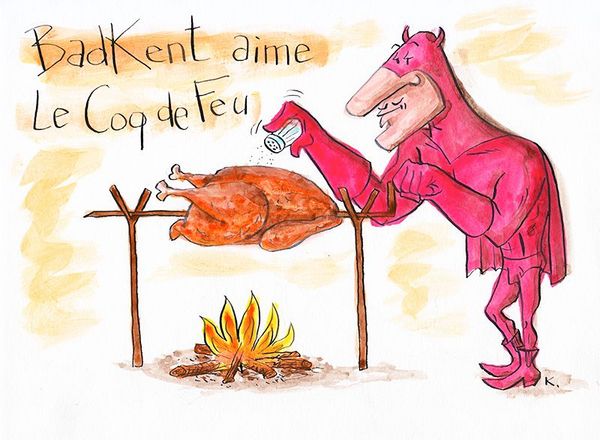 BadKent aime
Le Coq de Feu
K.